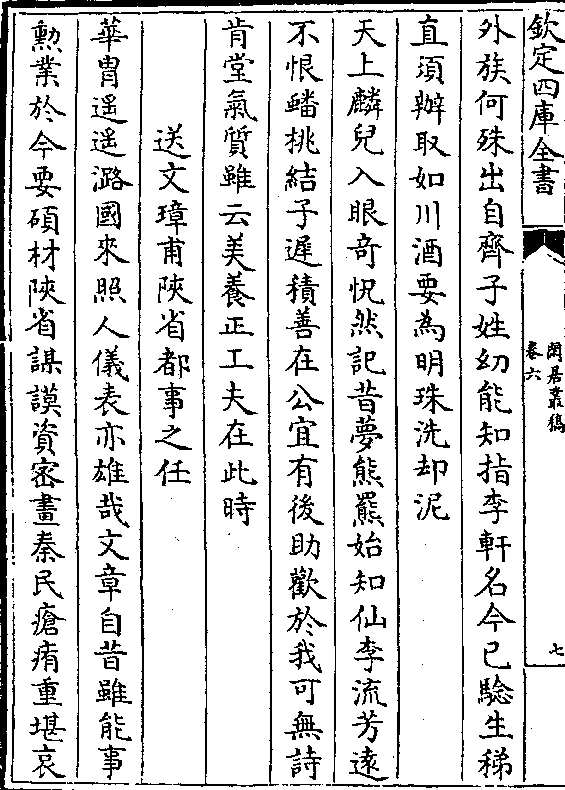 欽定四庫全書
閑居叢稿
卷六
七
外族何殊出自齊子姓幼能知指李軒名今已騐生稊
直須辦取如川酒要為明珠洗却泥
天上麟兒入眼奇怳然記昔夢熊羆始知仙李流芳遠
不恨蟠桃結子遲積善在公宜有後助歡於我可無詩
肯堂氣質雖云美養正工夫在此時
送文璋甫陜省都事之任
華胄遥遥潞國來照人儀表亦雄哉文章自昔雖能事
勲業於今要碩材陜省謀謨資密畫秦民瘡痏重堪哀